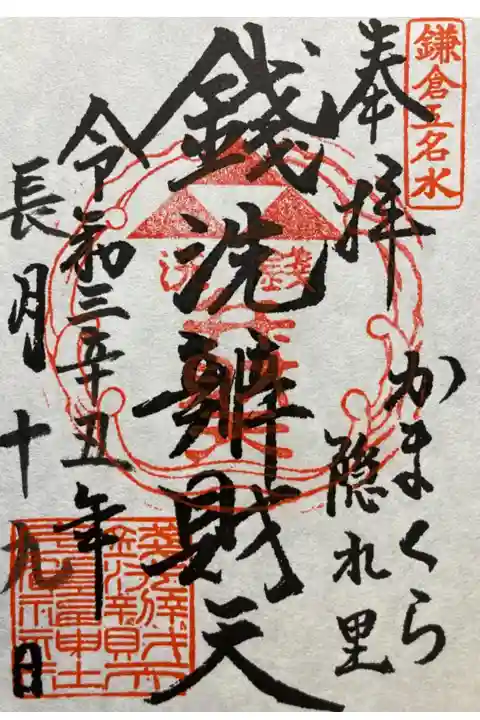 鎌倉五名水
奉拝
かまくら
隠れ里
銭洗辨財天
銭洗
令和三辛丑年
長月十九日